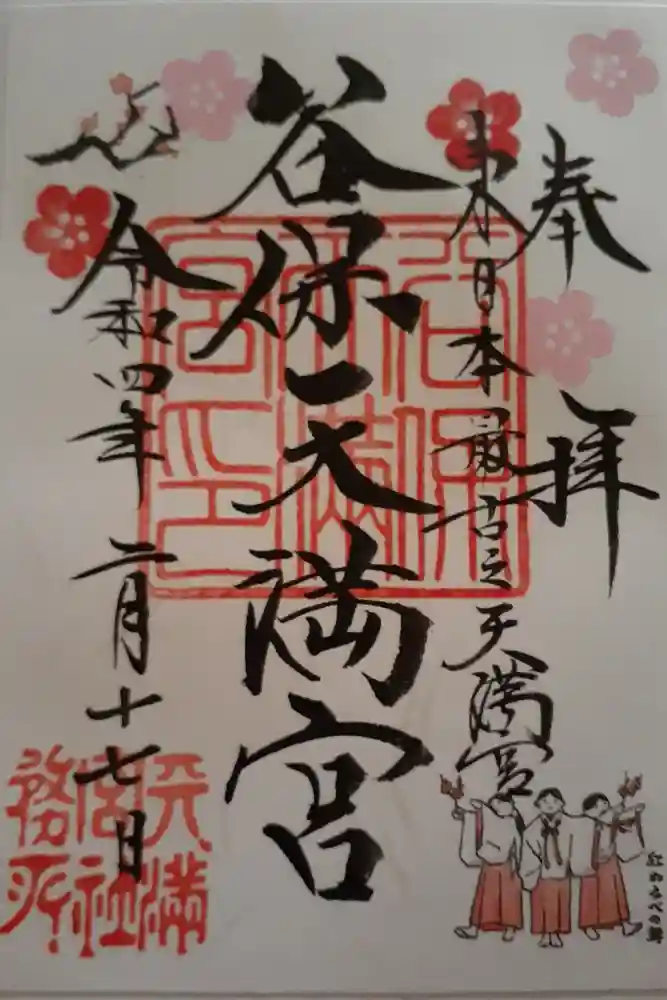 奉拝
東日本最古之天満宮
谷保天満宮
令和四年 二月十七日
谷保天満宮印
天満宮社務所
紅わらべの舞